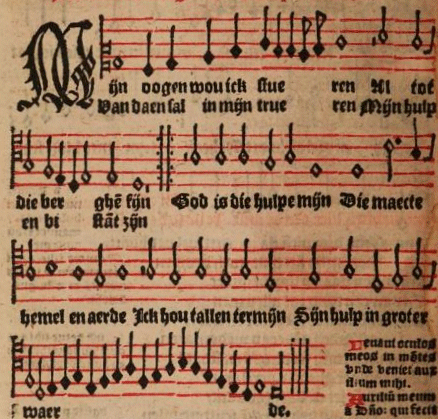 Mijn oogen wou ick stue ren Al tot
Van daen sal in mijn true ren Mijn hulp
die ber ghē sijn God is die hulpe mijn Die maecte
en bi stāt zijn
hemel en aerde Ick hou tallen termijn Sijn hulp in groter
waer de.
Leuaui oculos
meos in mōtes
vnde veniet aux
ilium mihi.
Auxiliū meum
a Dño: qui fecit